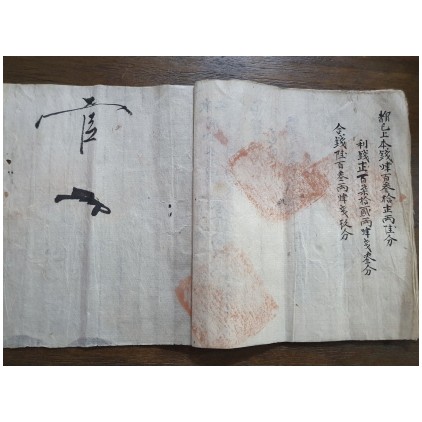 已上本錢肆百叄拾壹兩伍分
利錢壹百柒拾貳兩肆戔貳分
合錢陸百叄兩肆戔柒分
官